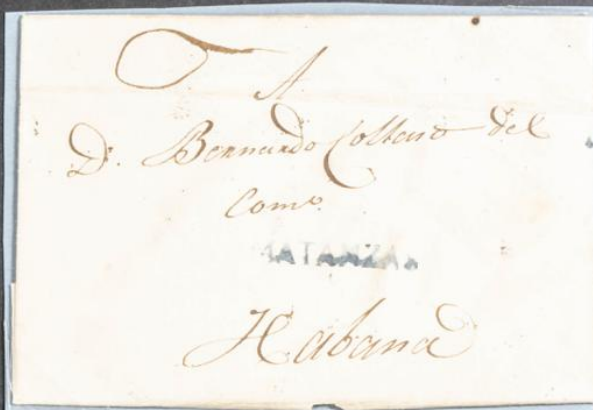 A
D. Bernardo Collaso del
Como.
MATANZAS
Habana